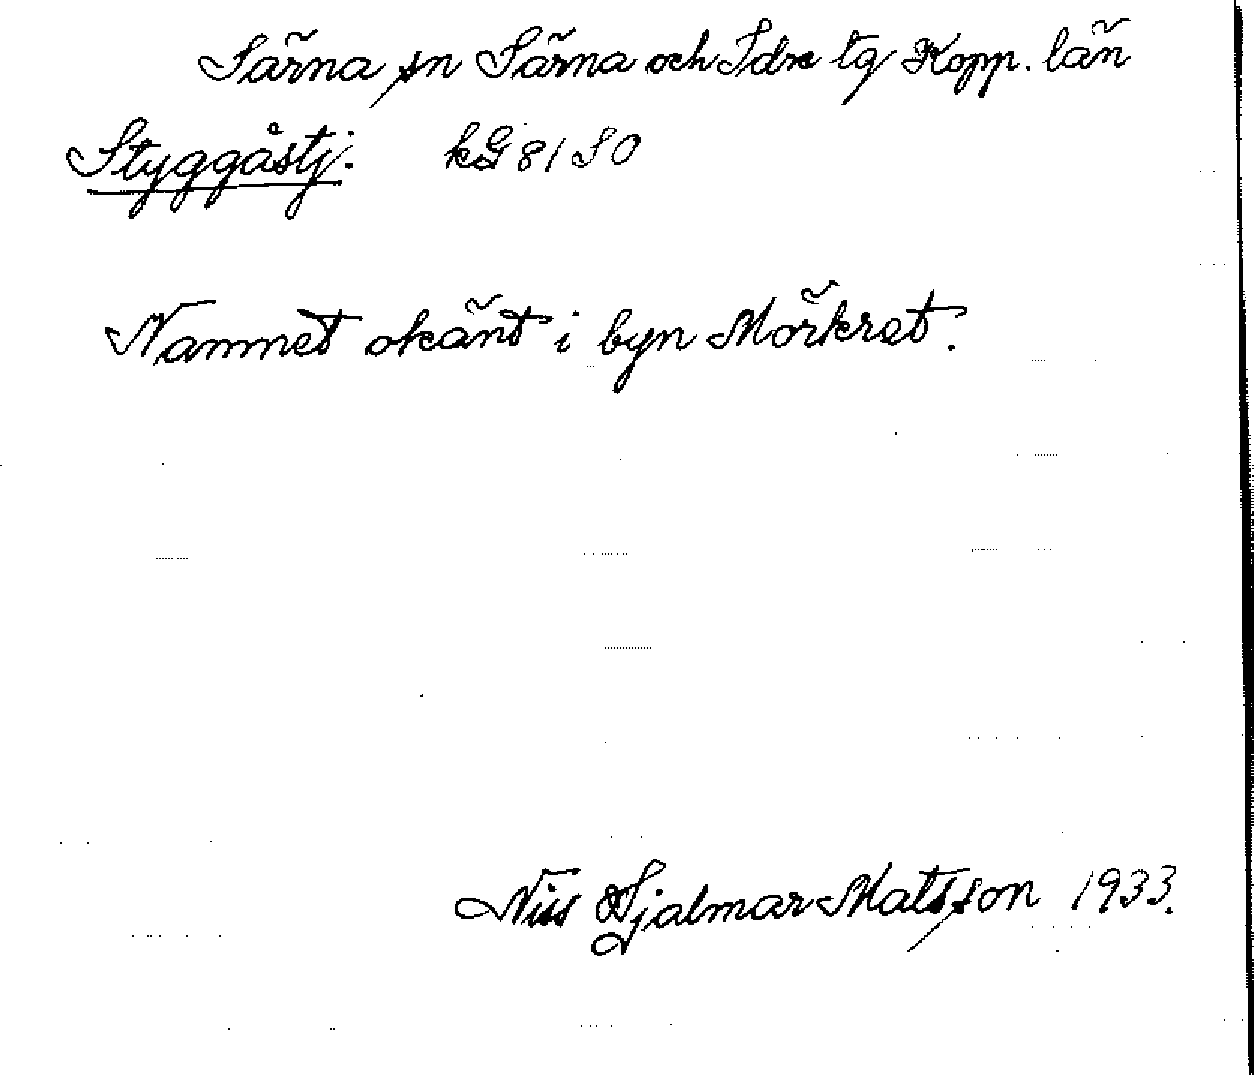 Särna sn Särna och Idre tg Kopp. län
Styggåstj. kG 81 SO
Namnet okänt i byn Mörkret.
Nils Hjalmar Matsson 1933.